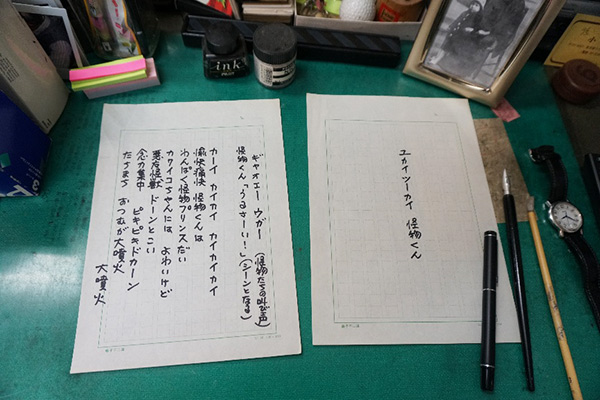 ユカイツーカイ 怪物くん
ギャオエー ウガー (怪物たちの叫び声)
怪物くん「うるさーい!」(シーンとなる)
カーイ カイカイ カイカイカイ
愉快痛快 怪物くんは
わんぱく怪物プリンスだい
カワイコちゃんには よわいけど
悪な怪獣 ドーンとこい
念力集中 ピキピキドカーン
たちまち おつむが大噴火
大噴火
ink
PILOT